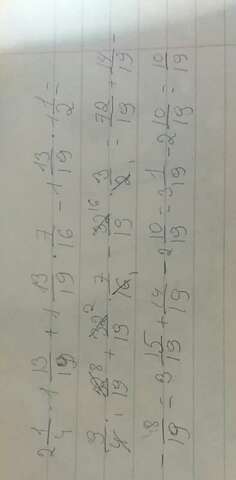 2 1/4 · 1 13/19 + 1 13/19 · 7/16 - 1 13/19 · 1 1/2 =
9/4 · 32⁸/19 + 32²/19 · 7/16₁ - 32¹⁶/19 · 3/2₁ = 72/19 + 14/19 -
- 48/19 = 3 15/19 + 14/19 - 2 10/19 = 3 1/19 - 2 10/19 = 10/19